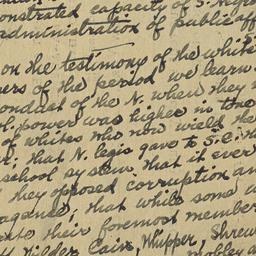 onstrated capacity of S. Negro
administration of public aff
on the testimony of the white
ers of the period we learn
onduct of the N. when they
l. powers was higher in the
of whites who now wield the
; that N. legis gave to S.C. th
school system, that it ever
they opposed corruption an
agance; that while some w
their foremost member
Cain, Whipper, Shrew
mobley a